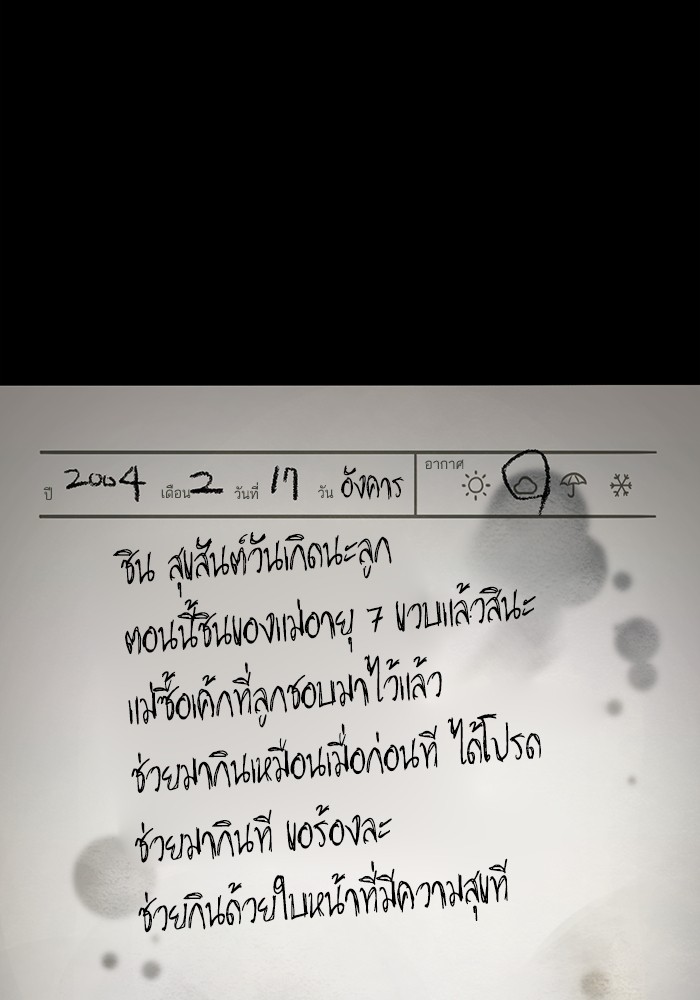 ปี 2004 เดือน 2 วันที่ 17 วัน อังคาร อากาศ
ชิน สุขสันต์วันเกิดนะลูก
ตอนนี้ชินของแม่อายุ 7 ขวบแล้วสินะ
แม่ซื้อเค้กที่ลูกชอบมาไว้แล้ว
ช่วยมากินเหมือนเมื่อก่อนที ได้โปรด
ช่วยมากินที ขอร้องละ
ช่วยกินด้วยใบหน้าที่มีความสุขที